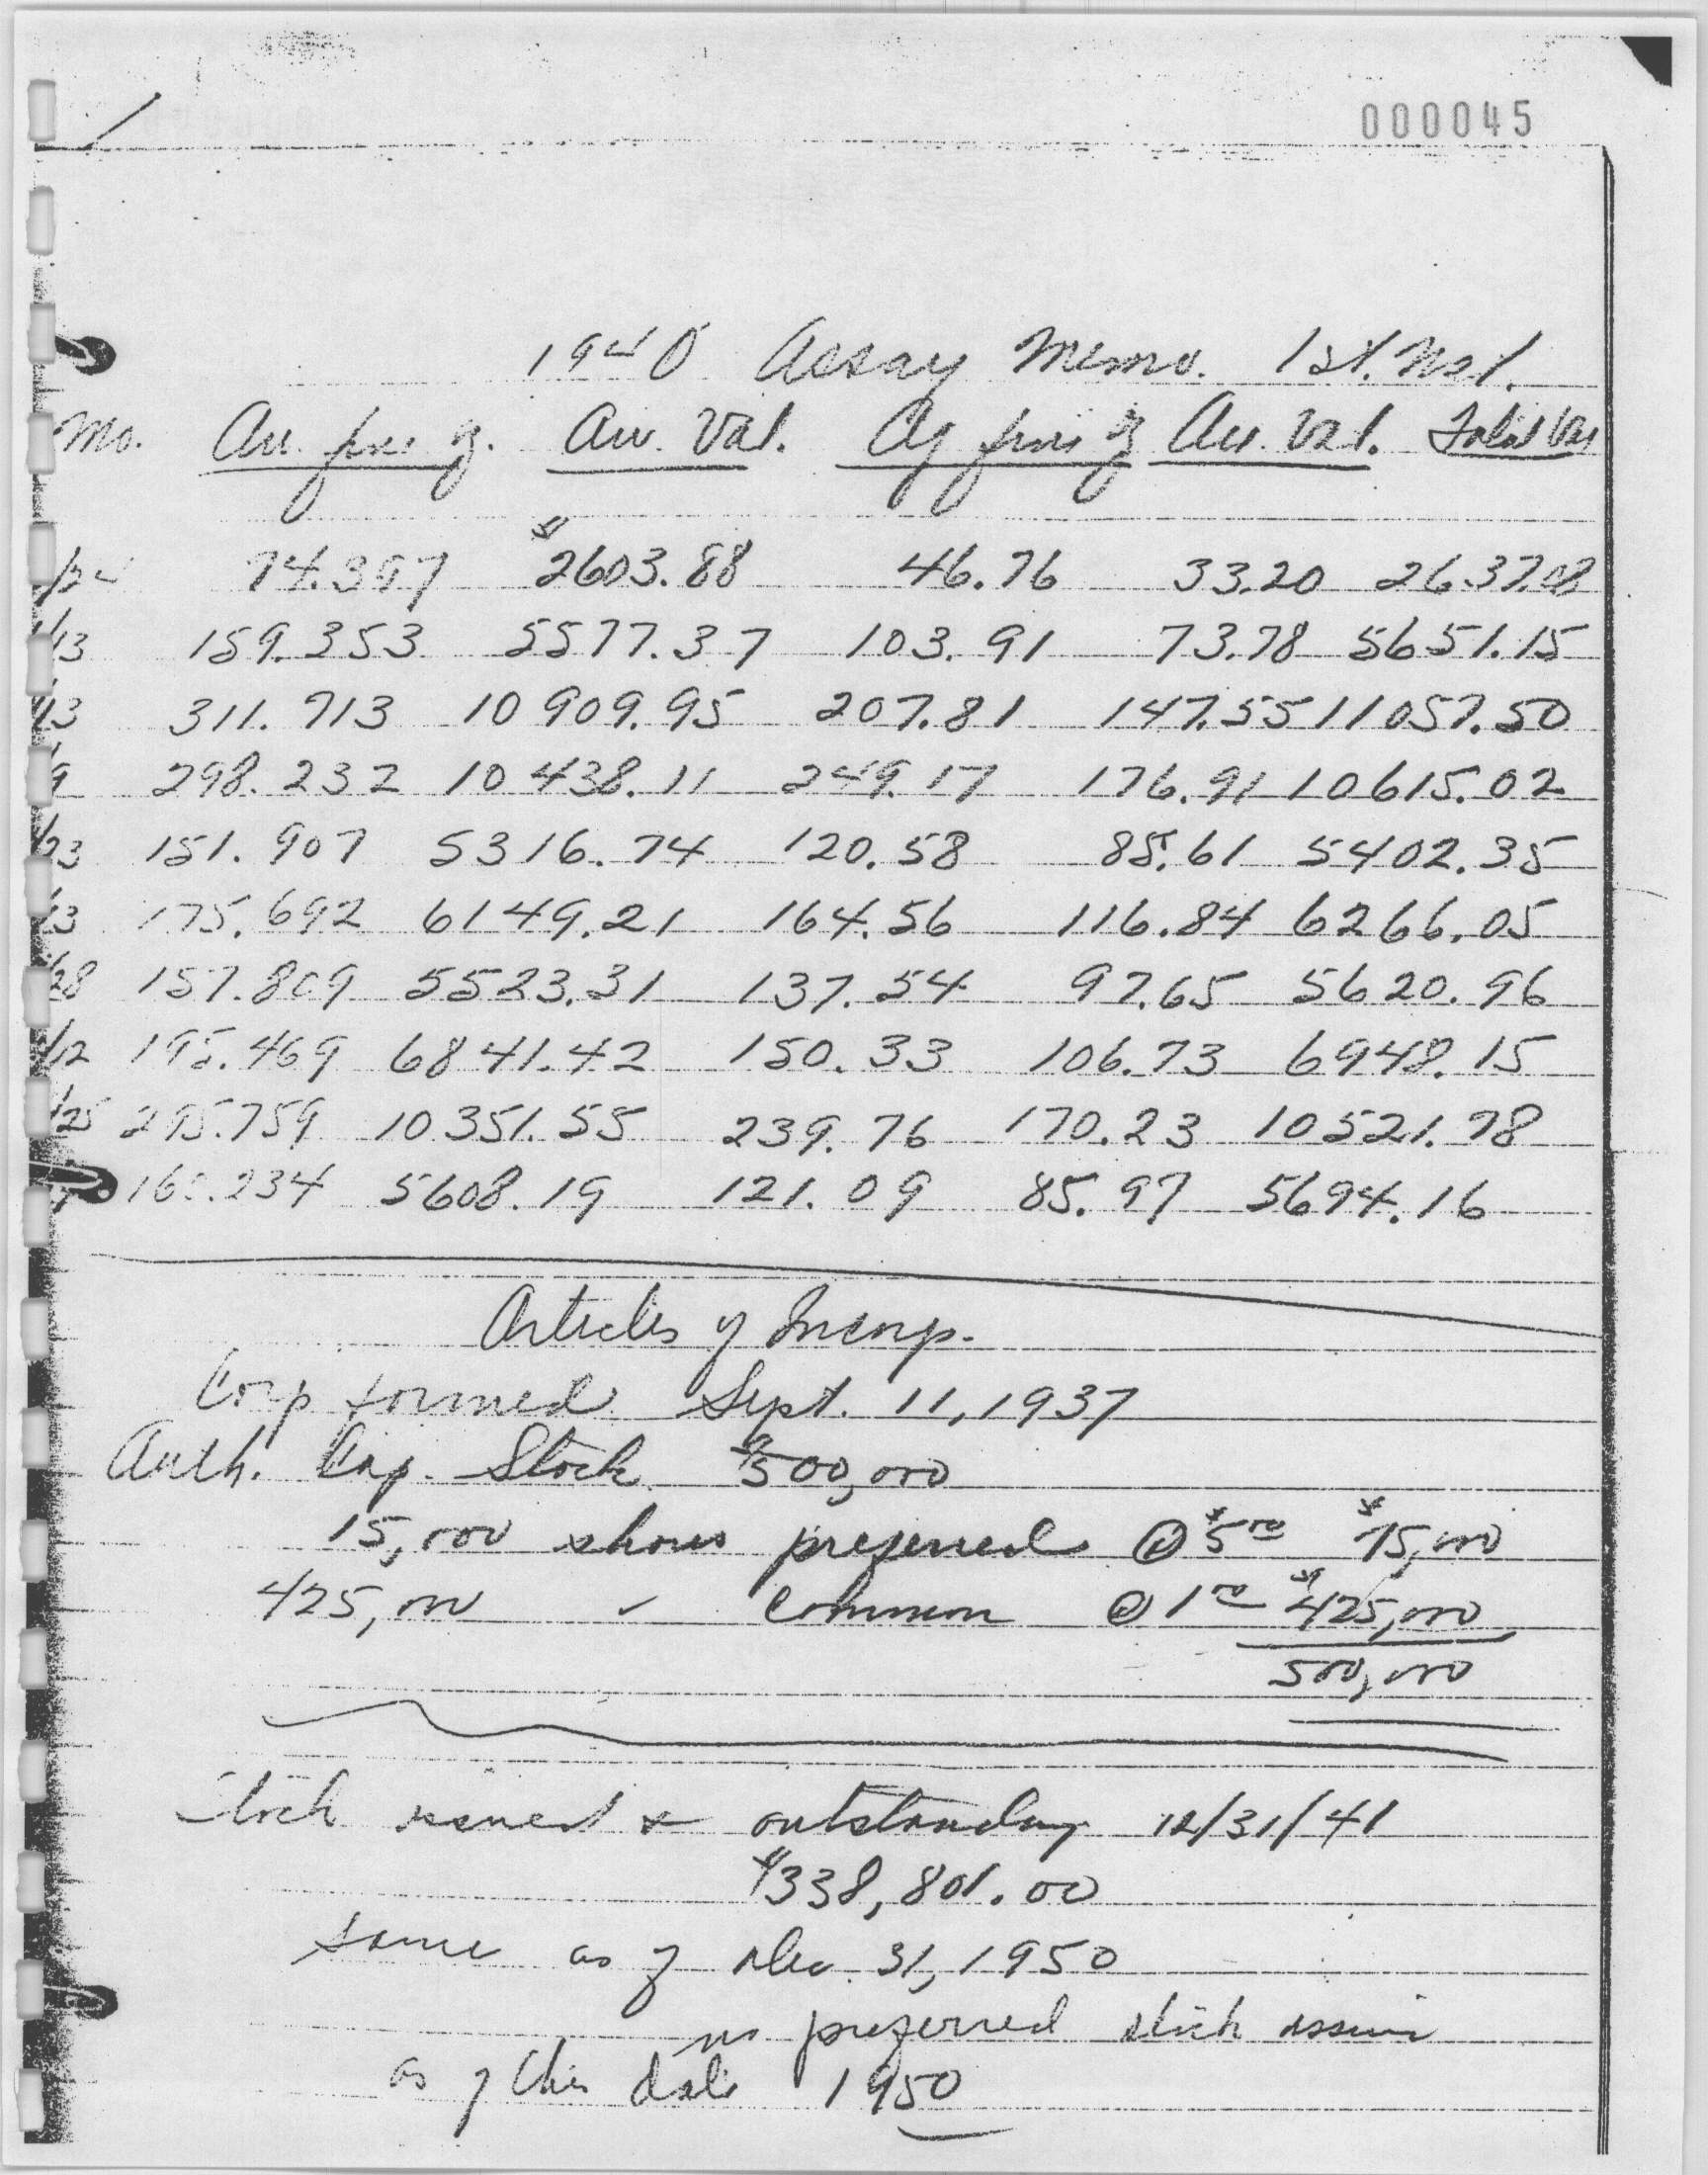 000045
1940 Assay Memo. 1st. Nat.
Mo. Au fine oz. Au. Val. Ag fine oz Au. Val. Total Val
/24 74.397 $2603.88 46.76 33.20 26.37.08
/13 159.353 5577.37 103.91 73.78 5651.15
/13 311.713 10909.95 207.81 147.55 11057.50
/9 298.232 10438.11 249.17 176.91 10615.02
/23 151.907 5316.74 120.58 85.61 5402.35
/13 175.692 6149.21 164.56 116.84 6266.05
/28 157.809 5523.31 137.54 97.65 5620.96
/12 195.469 6841.42 150.33 106.73 6948.15
/25 295.759 10351.55 239.76 170.23 10521.78
160.234 5608.19 121.09 85.97 5694.16
Articles of Incorp.
Corp formed Sept. 11, 1937
Auth. Cap. Stock $500,000
15,000 shares preferred @ $5.00 $75,000
425,000 " common @ 1.00 $425,000
500,000
Stock issued & outstanding 12/31/41
$338,801.00
same as of Dec. 31, 1950
no preferred stock
as of this date 1950